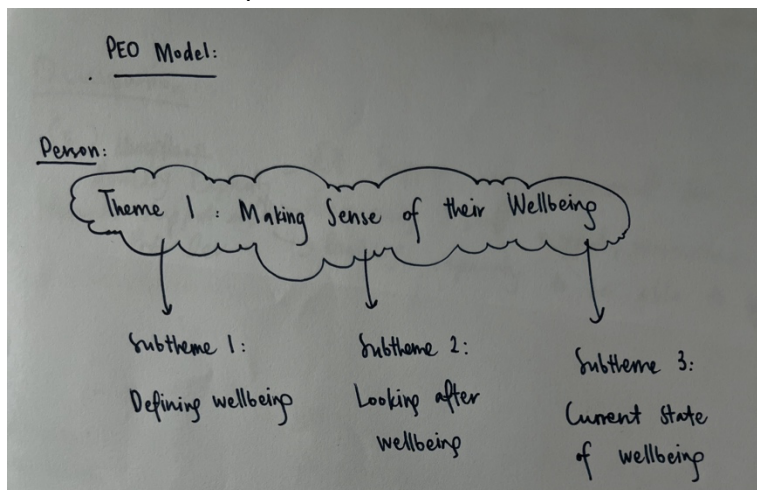 PEO Model:
Person:
Theme 1 : Making Sense of their Wellbeing
Subtheme 1:
Defining wellbeing
Subtheme 2:
Looking after
wellbeing
Subtheme 3:
Current state
of wellbeing